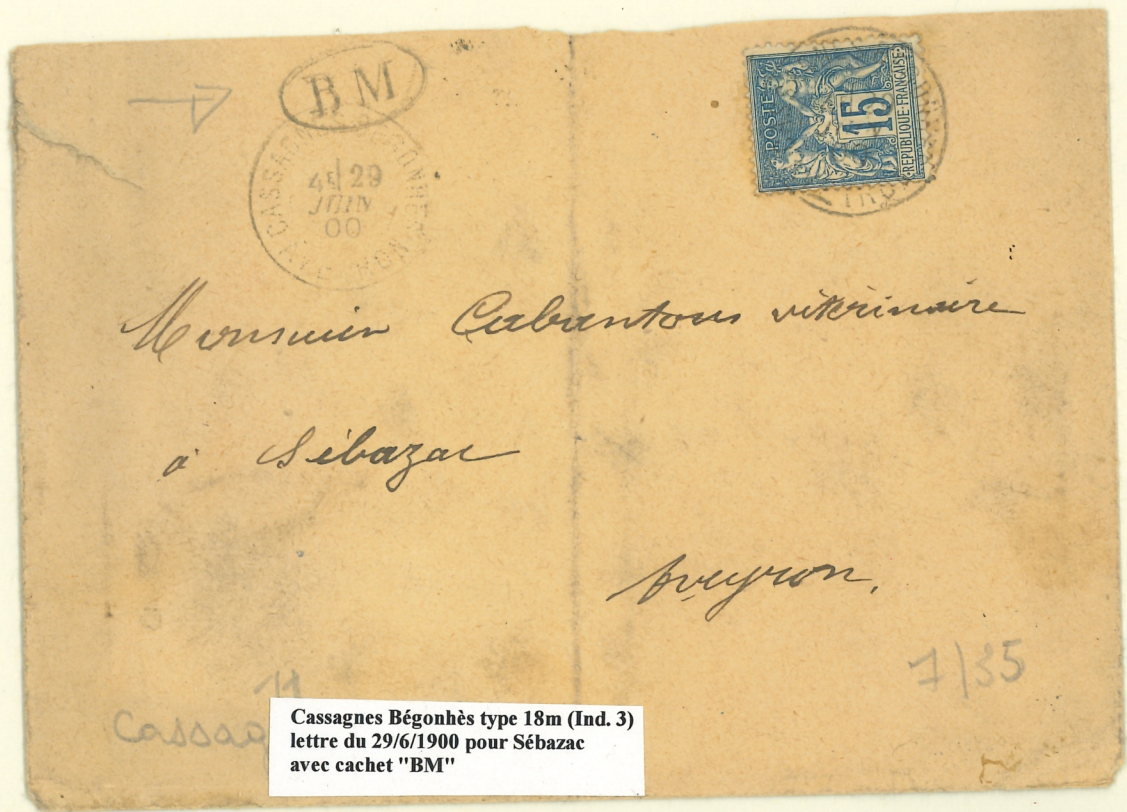 BM
4E 29
JUIN
00
POSTE
15
REPUBLIQUE FRANÇAISE
Monsieur Cabantous vétérinaire
à Sébazac
Aveyron.
7/35
Cassag
Cassagnes Bégonhès type 18m (Ind. 3)
lettre du 29/6/1900 pour Sébazac
avec cachet "BM"